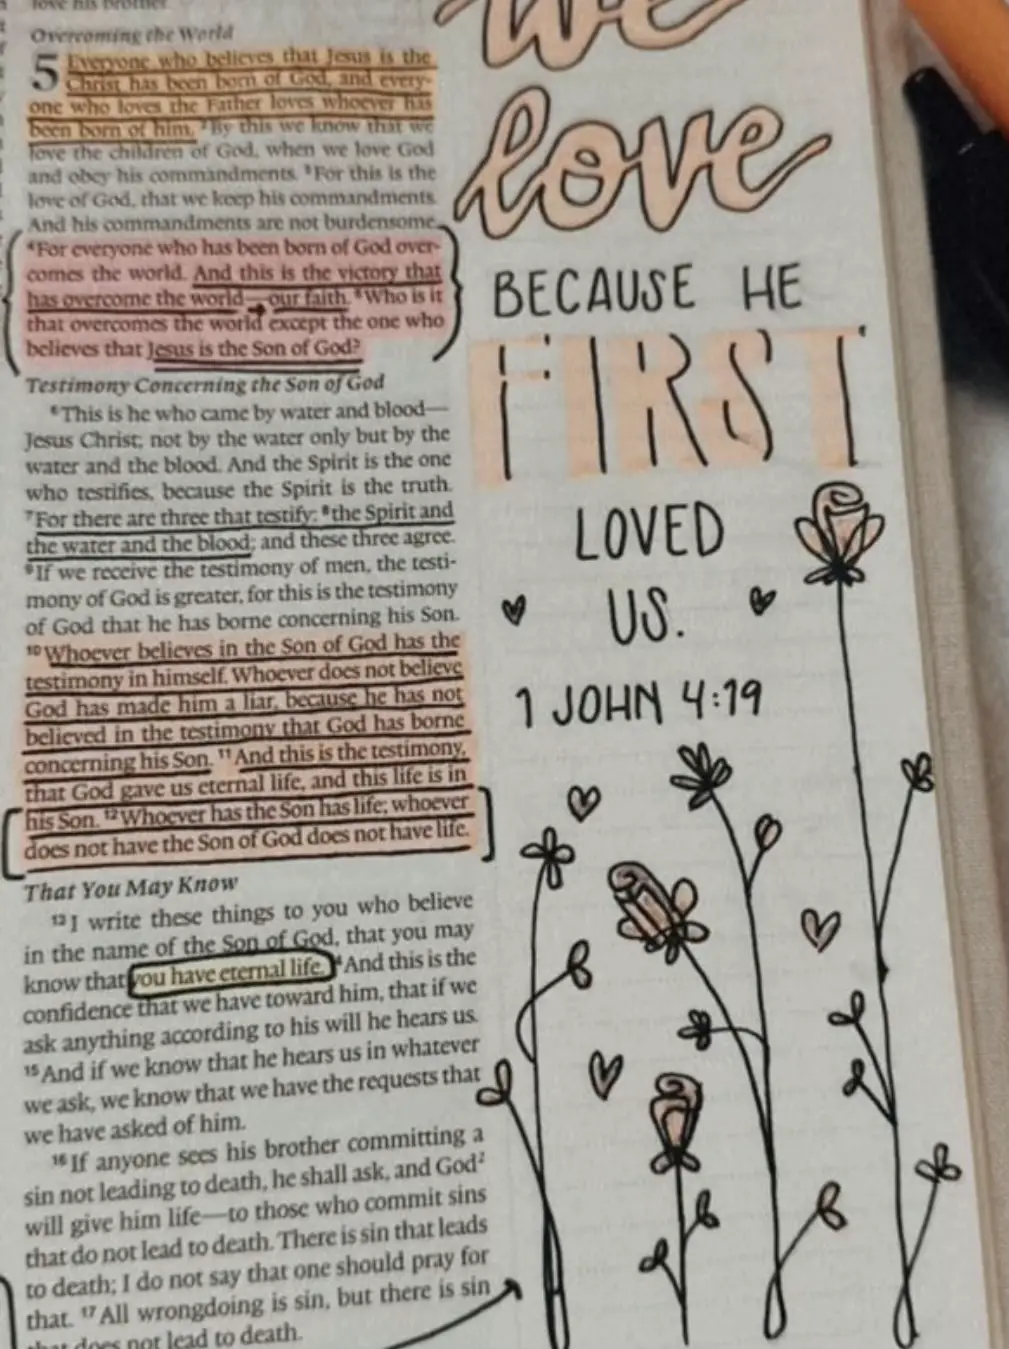 love his brother.
Overcoming the World
5 Everyone who believes that Jesus is the
Christ has been born of God, and every-
one who loves the Father loves whoever has
been born of him. ²By this we know that we
love the children of God, when we love God
and obey his commandments. ³For this is the
love of God, that we keep his commandments.
And his commandments are not burdensome.
⁴For everyone who has been born of God over-
comes the world. And this is the victory that
has overcome the world—our faith. ⁵Who is it
that overcomes the world except the one who
believes that Jesus is the Son of God?
Testimony Concerning the Son of God
⁶This is he who came by water and blood—
Jesus Christ; not by the water only but by the
water and the blood. And the Spirit is the one
who testifies, because the Spirit is the truth.
⁷For there are three that testify: ⁸the Spirit and
the water and the blood; and these three agree.
⁹If we receive the testimony of men, the testi-
mony of God is greater, for this is the testimony
of God that he has borne concerning his Son.
¹⁰Whoever believes in the Son of God has the
testimony in himself. Whoever does not believe
God has made him a liar, because he has not
believed in the testimony that God has borne
concerning his Son. ¹¹And this is the testimony,
that God gave us eternal life, and this life is in
his Son. ¹²Whoever has the Son has life; whoever
does not have the Son of God does not have life.
That You May Know
¹³I write these things to you who believe
in the name of the Son of God, that you may
know that you have eternal life. ⁴And this is the
confidence that we have toward him, that if we
ask anything according to his will he hears us.
¹⁵And if we know that he hears us in whatever
we ask, we know that we have the requests that
we have asked of him.
¹⁶If anyone sees his brother committing a
sin not leading to death, he shall ask, and God²
will give him life—to those who commit sins
that do not lead to death. There is sin that leads
to death; I do not say that one should pray for
that. ¹⁷All wrongdoing is sin, but there is sin
that does not lead to death.
we
love
BECAUSE HE
FIRST
LOVED
US.
1 JOHN 4:19